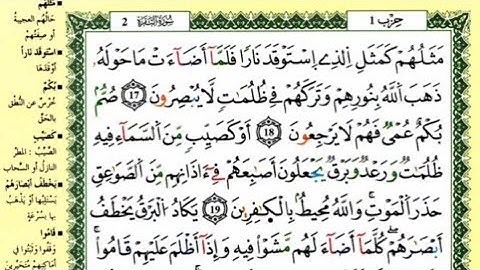 حِزْبُ 1
سُورَةُ البَقَرَةِ 2
مَثَلُهُمْ كَمَثَلِ اِ۬لذِے اِ۪سْتَوْقَدَ نَارٗا فَلَمَّآ أَضَآءَتْ مَا حَوْلَهُۥ
ذَهَبَ اَ۬للَّهُ بِنُورِهِمْ وَتَرَكَهُمْ فِے ظُلُمَٰتٖ لَّا يُبْصِرُونَۖ 17 صُمُّۢ
بُكْمٌ عُمْيٞ فَهُمْ لَا يَرْجِعُونَۖ 18 أَوْ كَصَيِّبٖ مِّنَ اَ۬لسَّمَآءِ فِيهِ
ظُلُمَٰتٞ وَرَعْدٞ وَبَرْقٞ يَجْعَلُونَ أَصَٰبِعَهُمْ فِےٓ ءَاذَانِهِم مِّنَ اَ۬لصَّوَٰعِقِ
حَذَرَ اَ۬لْمَوْتِۖ وَاللَّهُ مُحِيطُۢ بِالْكٰ۪فِرِينَۖ 19 يَكَادُ اُ۬لْبَرْقُ يَخْطَفُ
أَبْصَٰرَهُمْۖ كُلَّمَآ أَضَآءَ لَهُم مَّشَوْاْ فِيهِ وَإِذَآ أَظْلَمَ عَلَيْهِمْ قَامُواْۖ
مَثَلُهُمْ
حَالُهم العجيبة
أو صفتُهُمْ
اسْتَوْقَدَ نَاراً
أَوْقَدَهَا
بُكْمٌ
خُرْسٌ عن النُّطْقِ
بالحَقِّ
كَصَيِّبٍ
الصَّيِّبُ : المطَرُ
النازِلُ أو السَّحابُ
يَخْطَفُ أَبْصَارَهُمْ
يَسْتَلِبُهَا أو يَذْهَبُ
بها بسرعَةٍ
قَامُوا
وَقَفُوا وَثَبَتُوا في
أماكنِهِم مُتَحَيِّرِينَ